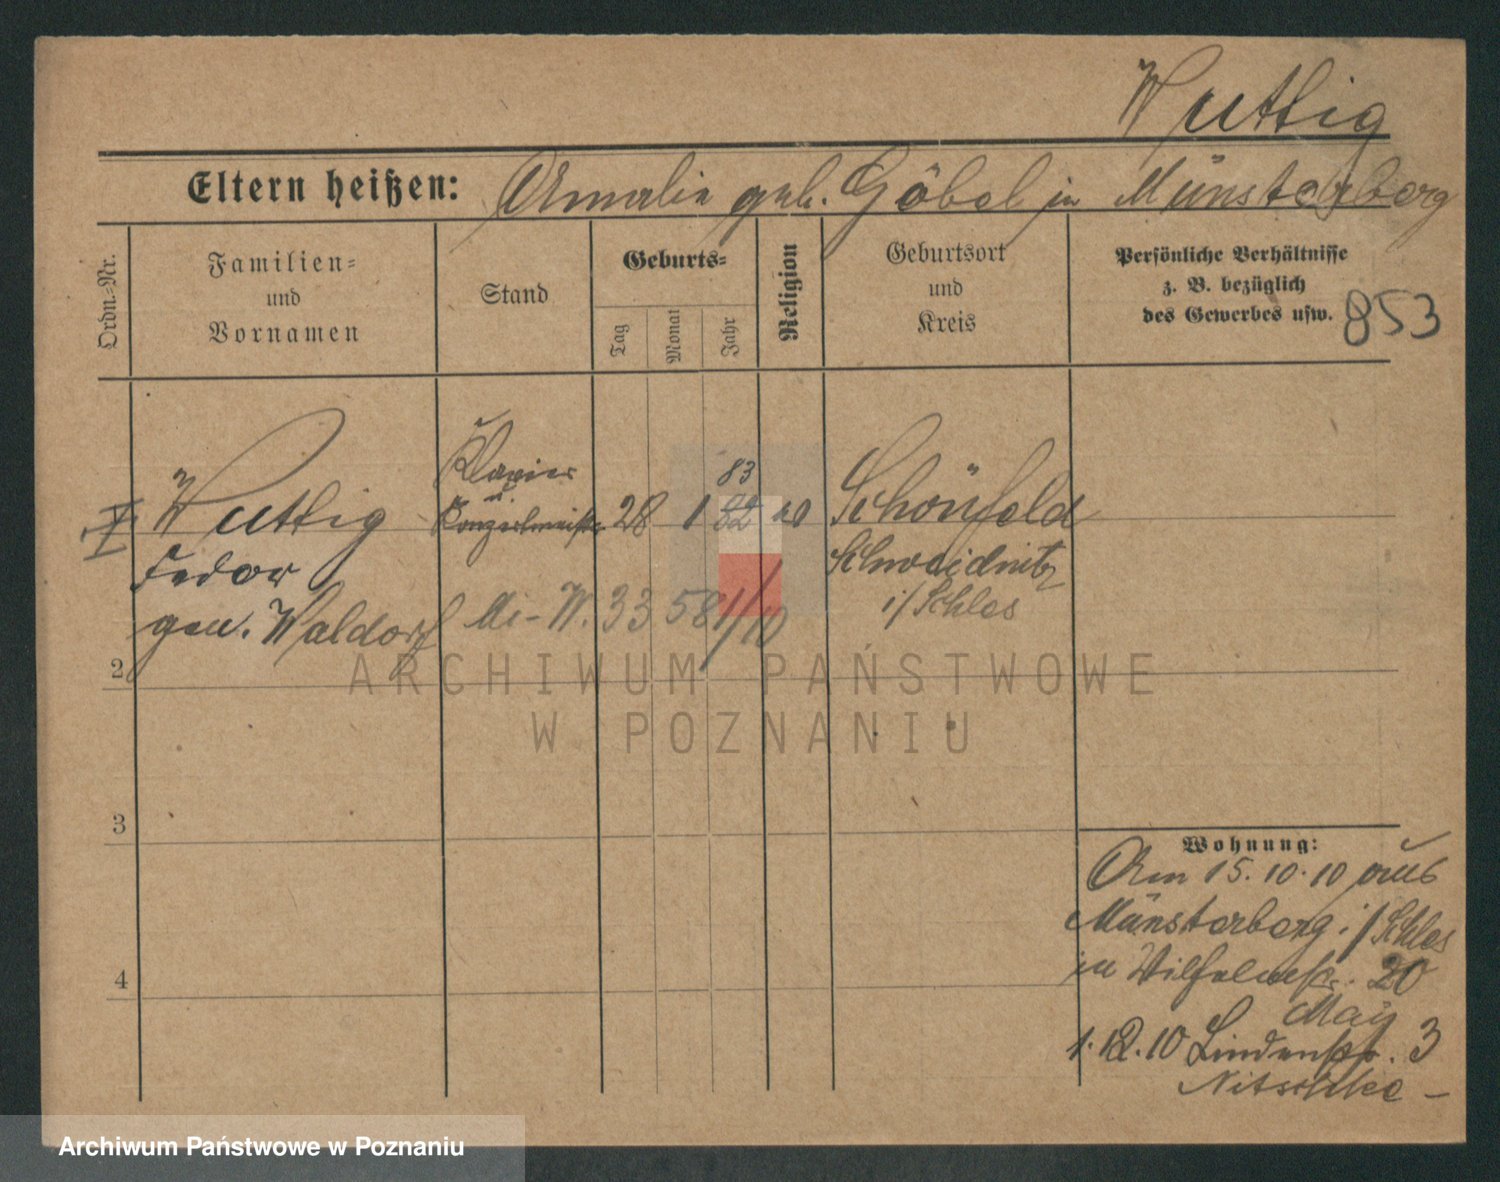 Wuttig
Eltern heißen: Amalie geb. Göbel in Münsterberg
Ordn.-Nr.
Familien-
und
Vornamen
Stand
Geburts-
Tag
Monat
Jahr
Religion
Geburtsort
und
Kreis
Persönliche Verhältnisse
z. B. bezüglich
des Gewerbes usw.
853
Wuttig
Fedor
gen. Waldorf
Klavier
u.
Konzertmeister
28 1 82
83
Schönfeld
Schweidnitz
i/Schles
M.-W. 33 58 1/10
2
3
4
Wohnung:
Am 15.10.10 aus
Münsterberg i/Schles
in Wilhelmstr. 20
May
1.12.10 Lindenstr. 3
Nitschke –
ARCHIWUM PAŃSTWOWE
W POZNANIU
Archiwum Państwowe w Poznaniu